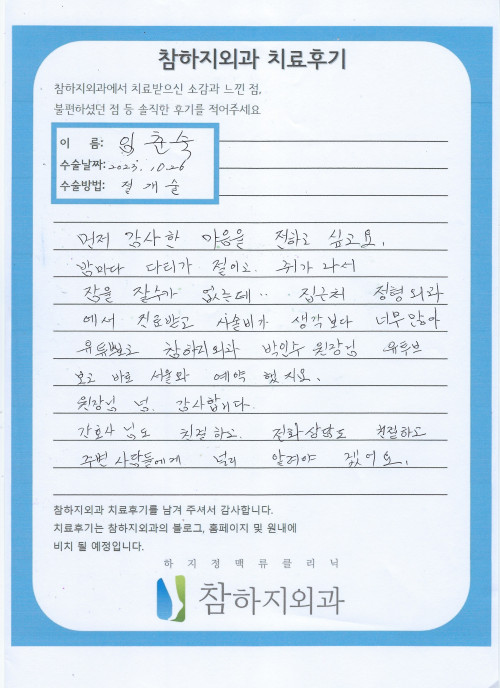 참하지외과 치료후기
참하지외과에서 치료받으신 소감과 느낀 점,
불편하셨던 점 등 솔직한 후기를 적어주세요
이 름: 임춘숙
수술날짜: 2023. 10.26
수술방법: 절개술
먼저 감사한 마음을 전하고 싶고요.
밤마다 다리가 절이고. 쥐가 나서
잠을 잘수가 없는데.. 집근처 정형외과
에서 진료받고 사술비가 생각보다 너무많아
유튜브보고 참하지외과 박인수 원장님 유투브
보고 바로 서울와 예약 했지요.
원장님 넘. 감사합니다.
간호사님도 친절하고. 전화상담도 친절하고
주변 사람들에게 널리 알려야 겠어요.
참하지외과 치료후기를 남겨 주셔서 감사합니다.
치료후기는 참하지외과의 블로그, 홈페이지 및 원내에
비치 될 예정입니다.
하지정맥류클리닉
참하지외과